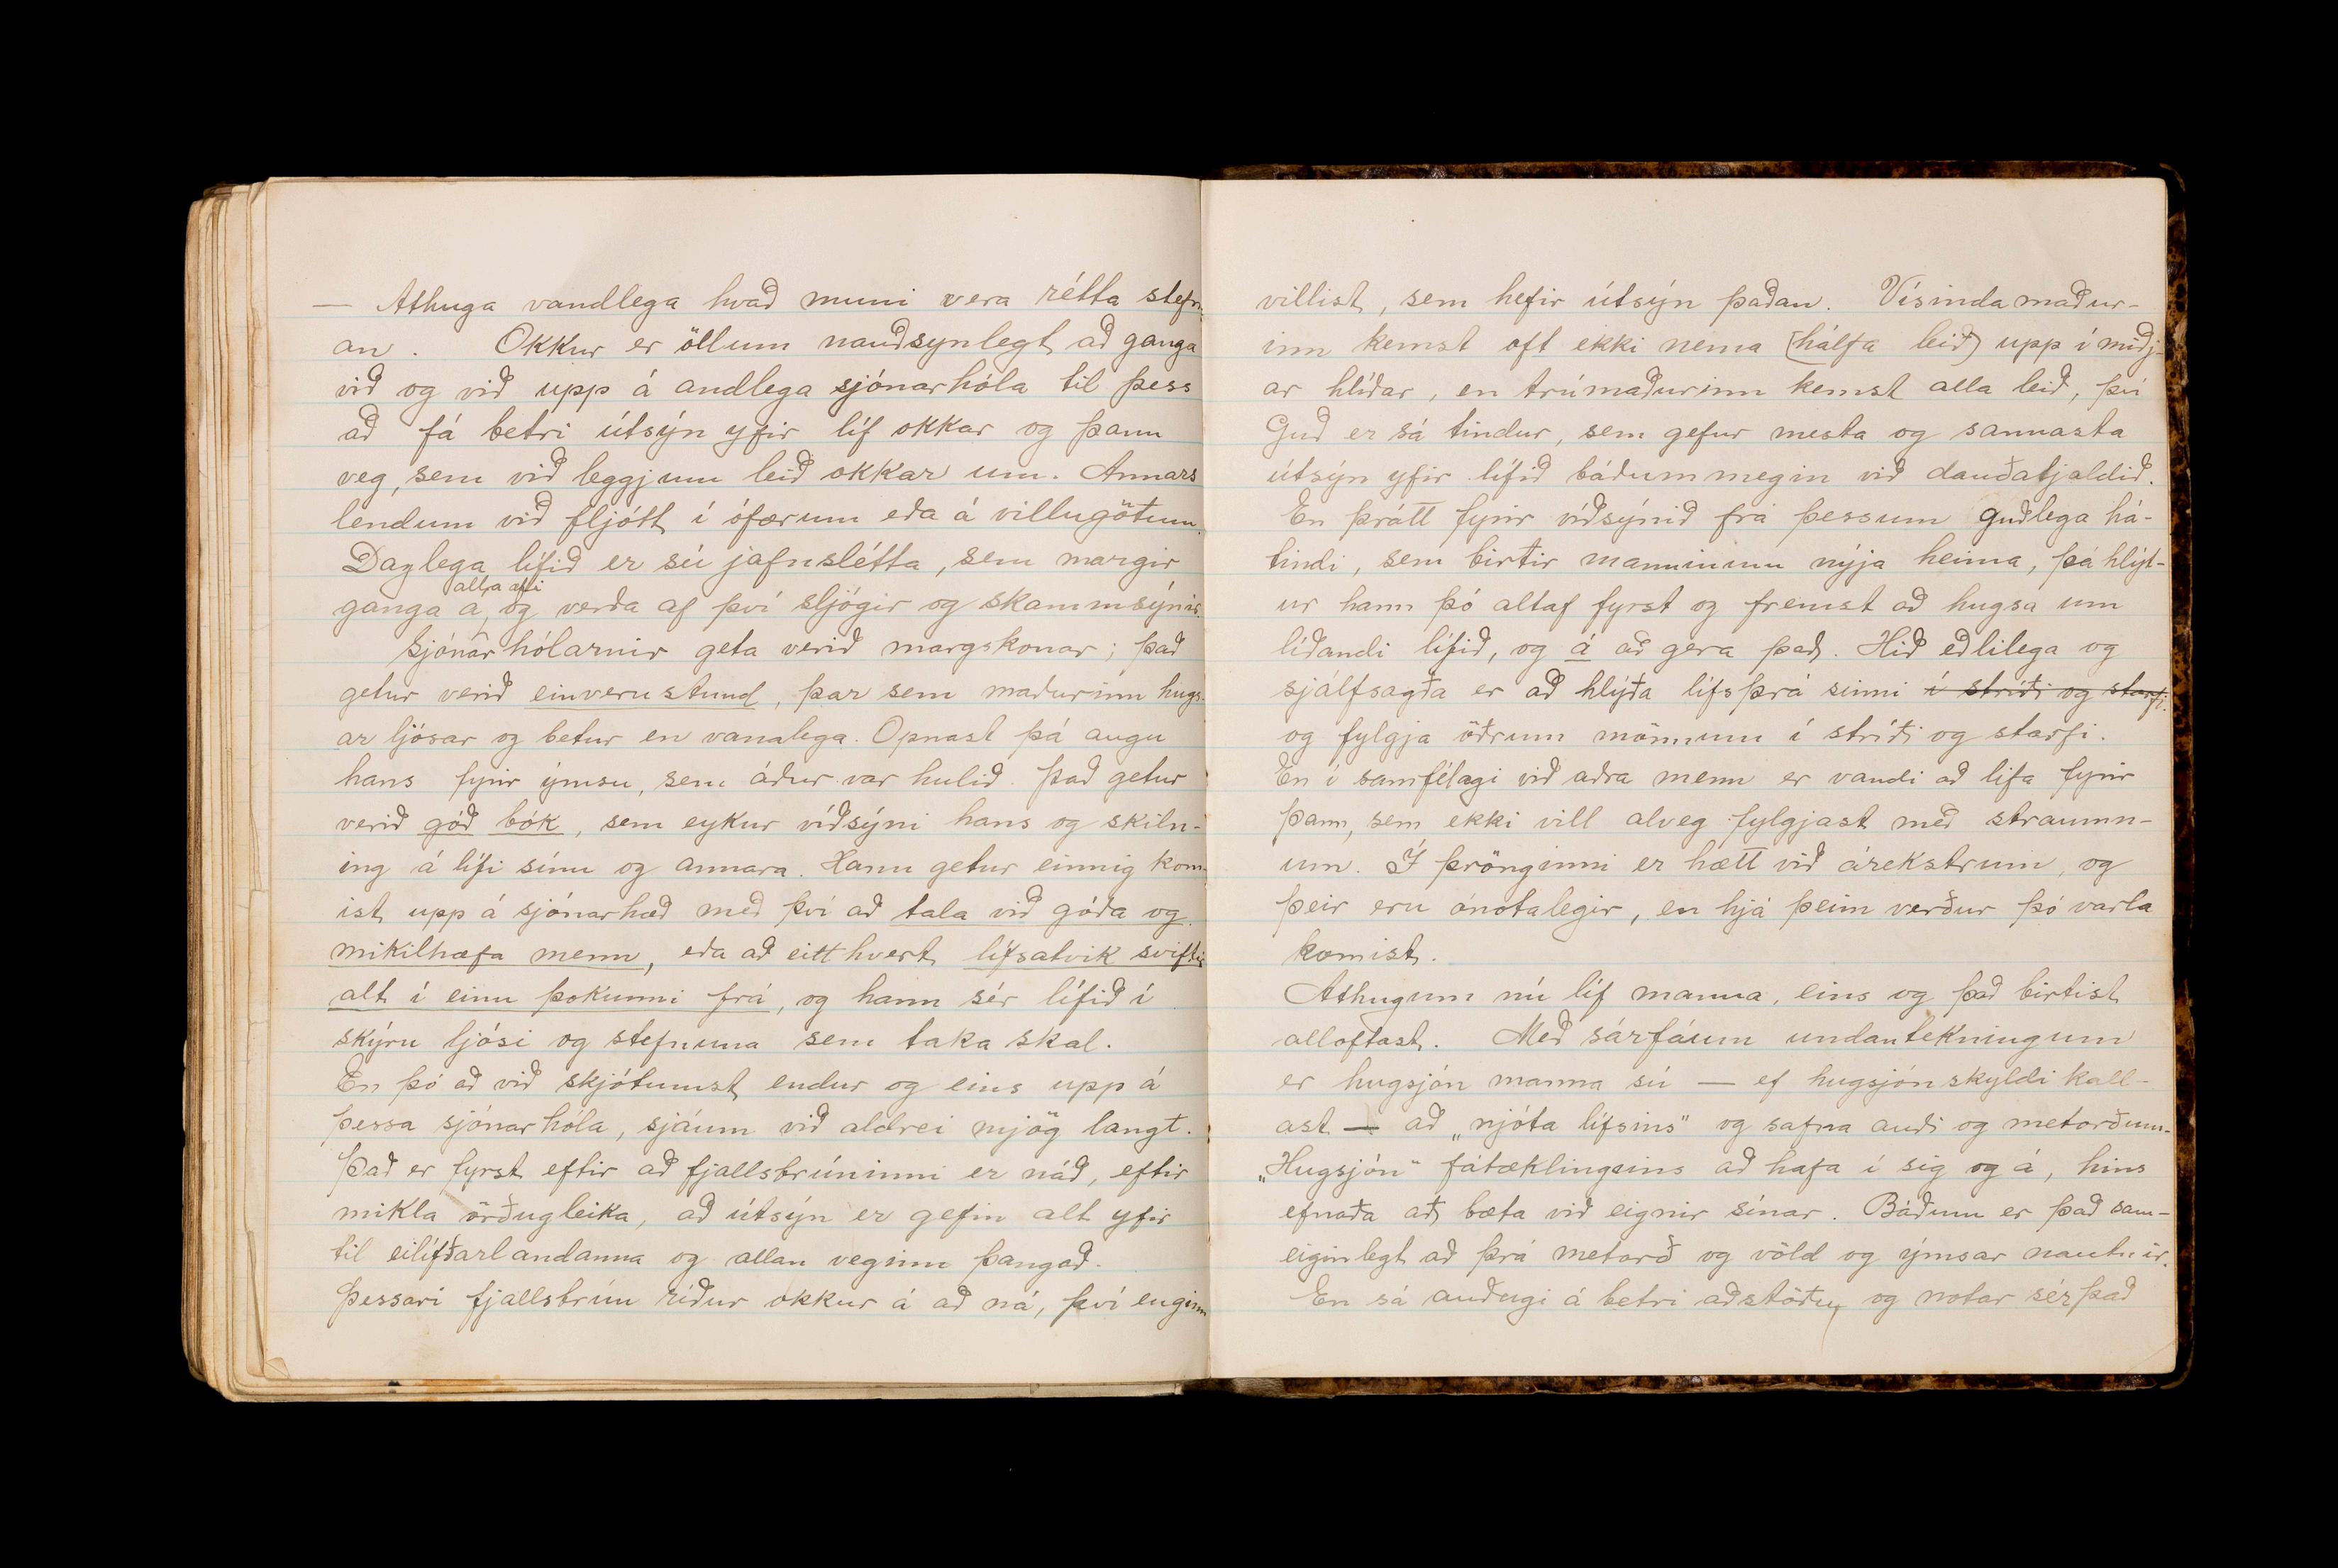 — Athuga vandlega hvað muni vera rétta stefn-
an. Okkur er öllum nauðsynlegt að ganga
við og við upp á andlega sjónarhóla til þess
að fá betri útsýn yfir líf okkar og þann
veg, sem við leggjum leið okkar um. Annars
lendum við fljótt í ófærum eða á villugötum.
Daglega lífið er sú jafnslétta, sem margir
alla æfi
ganga á, og verða af því sljógir og skammsýnir.
Sjónarhólarnir geta verið margskonar; það
getur verið einverustund, þar sem maðurinn hugs-
ar ljósar og betur en vanalega. Opnast þá augu
hans fyrir ýmsu, sem áður var hulið. Það getur
verið góð bók, sem eykur víðsýni hans og skiln-
ing á lífi sínu og annara. Hann getur einnig kom-
ist upp á sjónarhæð með því að tala við góða og
mikilhæfa menn, eða að eitthvert lífsatvik sviftir
alt í einu þokunni frá, og hann sér lífið í
skýru ljósi og stefnuna sem taka skal.
En þó að við skjótumst endur og eins upp á
þessa sjónarhóla, sjáum við aldrei mjög langt.
Það er fyrst eftir að fjallsbrúninni er náð, eftir
mikla örðugleika, að útsýn er gefin alt yfir
til eilífðarlandanna og allan veginn þangað.
Þessari fjallsbrún ríður okkur á að ná, því enginn
villist, sem hefir útsýn þaðan. Vísindamaður-
inn kemst oft ekki nema (hálfa leið) upp í miðj-
ar hlíðar, en trúmaðurinn kemst alla leið, því
Guð er sá tindur, sem gefur mesta og sannasta
útsýn yfir lífið báðummegin við dauðatjaldið.
En þrátt fyrir víðsýnið frá þessum guðlega há-
tindi, sem birtir manninum nýja heima, þá hlýt-
ur hann þó altaf fyrst og fremst að hugsa um
líðandi lífið, og á að gera það. Hið eðlilega og
sjálfsagða er að hlýða lífsþrá sinni í stríði og starfi.
og fylgja öðrum mönnum í stríði og starfi.
En í samfélagi við aðra menn er vandi að lifa fyrir
þann, sem ekki vill alveg fylgjast með straumn-
um. Í þrönginni er hætt við árekstrum, og
þeir eru ónotalegir, en hjá þeim verður þó varla
komist.
Athugum nú líf manna, eins og það birtist
alloftast. Með sárfáum undantekningum
er hugsjón manna sú — ef hugsjón skyldi kall-
ast — að „njóta lífsins" og safna auði og metorðum.
„Hugsjón" fátæklingsins að hafa í sig og á, hins
efnaða að bæta við eignir sínar. Báðum er það sam-
eiginlegt að þrá metorð og völd og ýmsar nautnir.
En sá auðugi á betri aðstöðu, og notar sér það